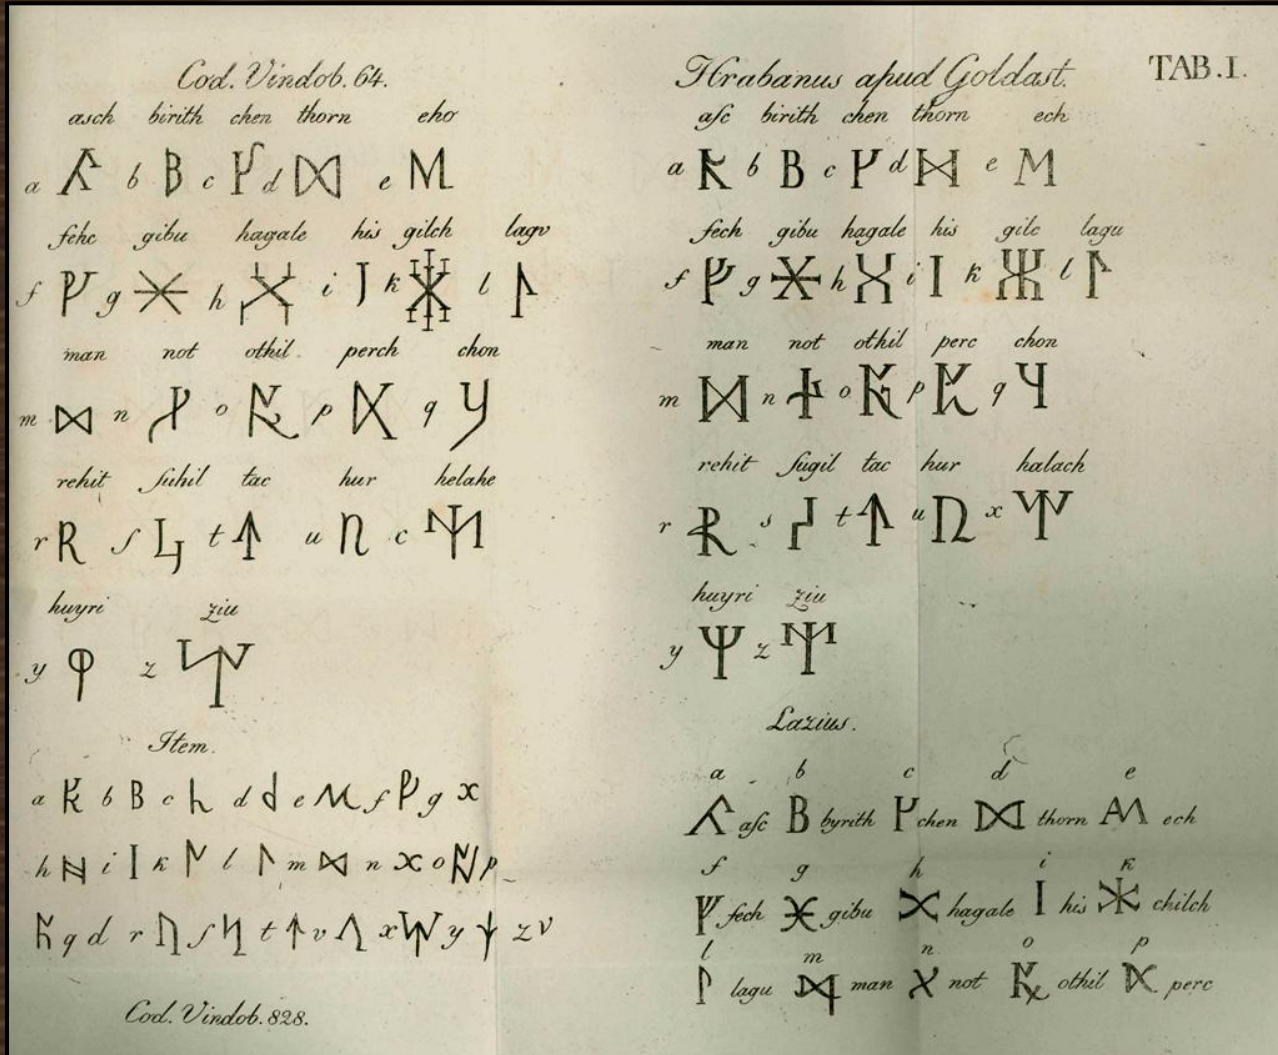 TAB. I.
Cod. Vindob. 64.
asch birith chen thorn eho
a b c d e
fehc gibu hagale his gilch lagv
f g h i k l
man not othil perch chon
m n o p q
rehit ſuhil tac hur helahe
r ſ t u c
huyri ziu
y z
Item.
a b c d e f g
h i k l m n o p
q r ſ t v x y z
Cod. Vindob. 828.
Hrabanus apud Goldast.
aſc birith chen thorn ech
a b c d e
fech gibu hagale his gilc lagu
f g h i k l
man not othil perc chon
m n o p q
rehit ſugil tac hur halach
r s t u x
huyri ziu
y z
Lazius.
a b c d e
aſc byrith chen thorn ech
f g h i k
fech gibu hagale his chilch
l m n o p
lagu man not othil perc